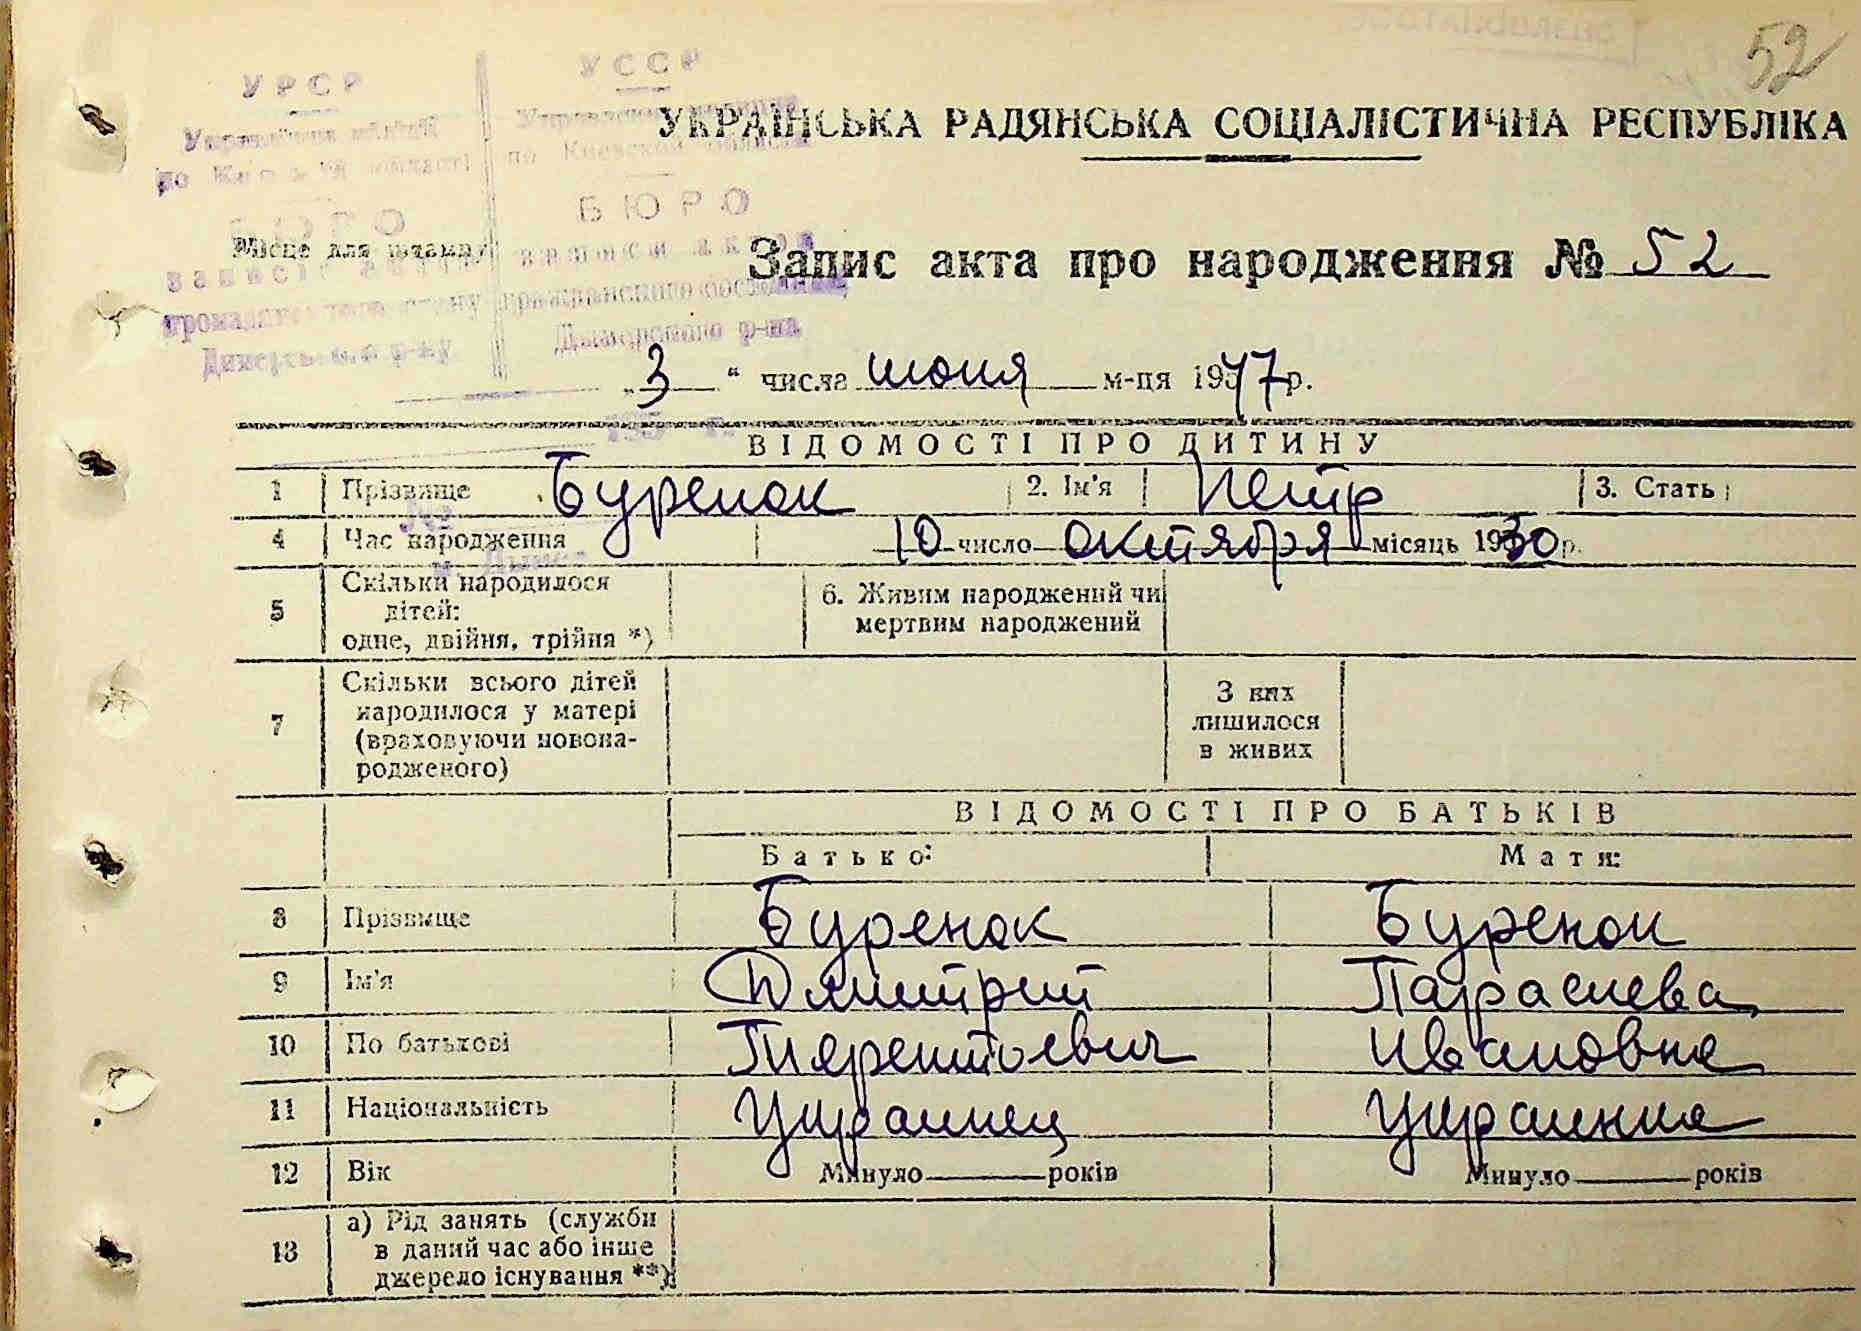 52
УРСР
УССР
Управління міліції
по Київській області
по Киевской области
БЮРО
БЮРО
УКРАЇНСЬКА РАДЯНСЬКА СОЦІАЛІСТИЧНА РЕСПУБЛІКА
Місце для штампу
записи актов
гражданского состояния
Димерского р-на
Запис акта про народження № 52
„3“ числа июня м-ця 1947 р.
195 г.
ВІДОМОСТІ ПРО ДИТИНУ
1 Прізвище Буренок 2. Ім'я Петр 3. Стать
№
4 Час народження 10 число октября місяць 1930 р.
5 Скільки народилося дітей: одне, двійня, трійня *) 6. Живим народжений чи мертвим народжений
7 Скільки всього дітей народилося у матері (враховуючи новонародженого) З них лишилося в живих
ВІДОМОСТІ ПРО БАТЬКІВ
Батько: Мати:
8 Прізвище Буренок Буренок
9 Ім'я Дмитрий Параскева
10 По батькові Терентьевич Ивановна
11 Національність Украинец Украинка
12 Вік Минуло років Минуло років
13 а) Рід занять (служби в даний час або інше джерело існування **)